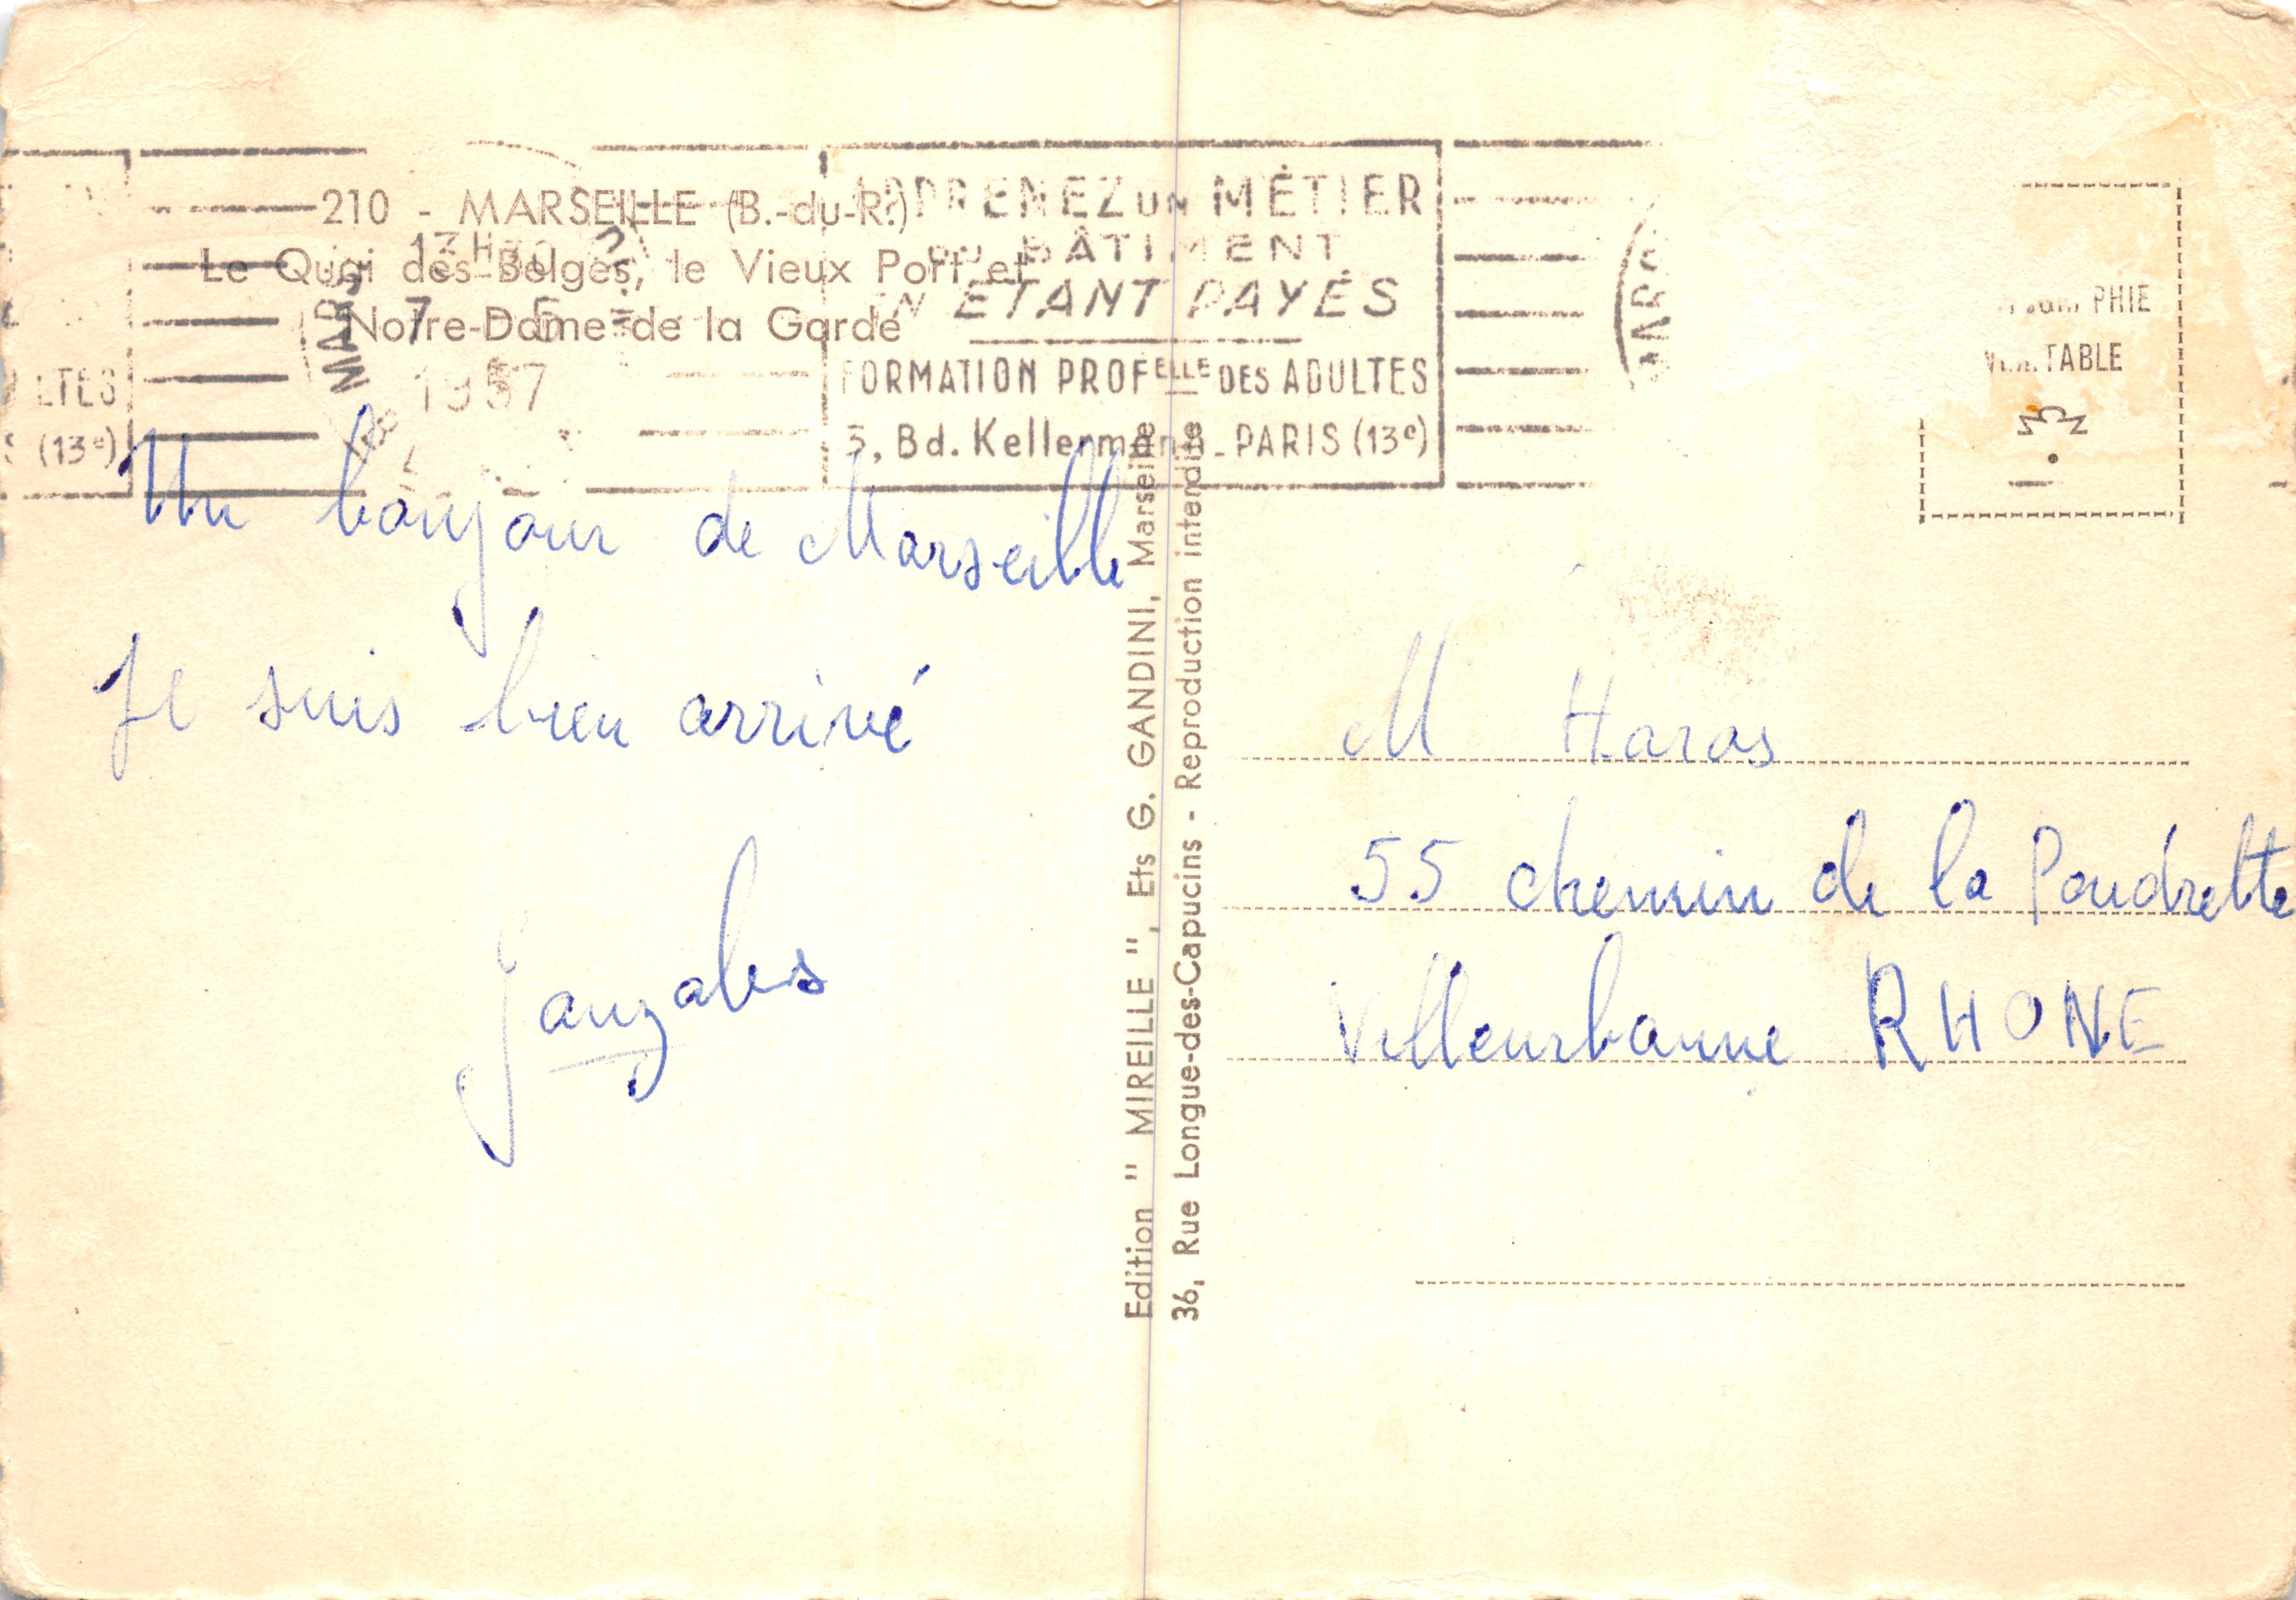 210 - MARSEILLE (B.-du-R.)
Le Quai des Belges, le Vieux Port et
Notre-Dame de la Garde
13H30
7 5
1957
MARSEILLE
APPRENEZ UN MÉTIER
DU BÂTIMENT
EN ÉTANT PAYÉS
FORMATION PROFELLE DES ADULTES
3, Bd. Kellermann - PARIS (13e)
LTES
(13e)
MARS
PHIE
VÉRITABLE
Un bonjour de Marseille
Je suis bien arrivé
Gonzales
Edition " MIREILLE ", Ets G. GANDINI, Marseille
36, Rue Longue-des-Capucins - Reproduction interdite
M Haras
55 chemin de la Poudrette
Villeurbanne RHONE